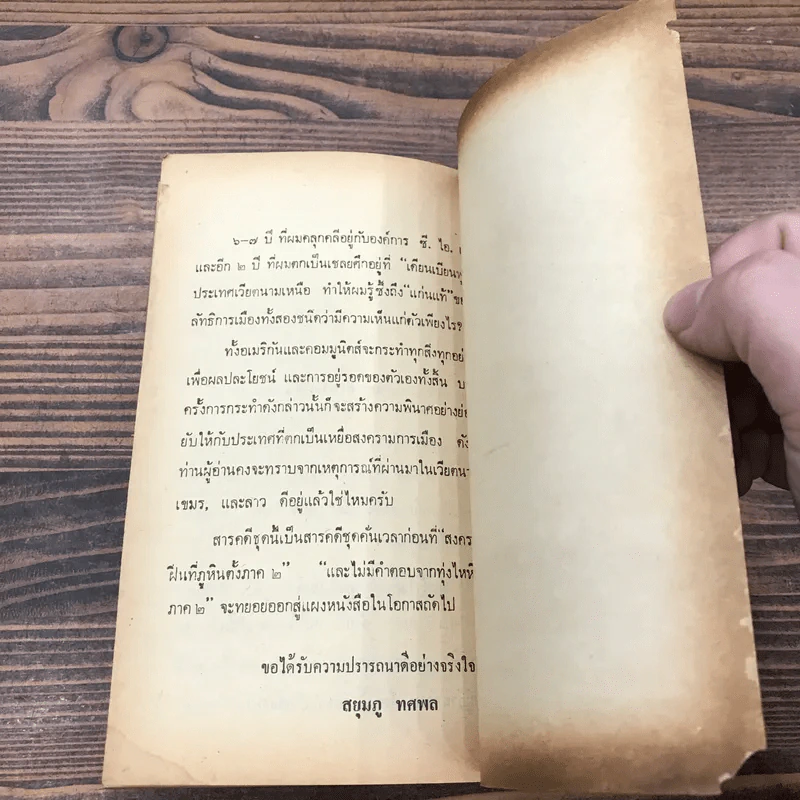 ๖-๗ ปี ที่ผมคลุกคลีอยู่กับองค์การ ซี. ไอ.
และอีก ๒ ปี ที่ผมตกเป็นเชลยศึกอยู่ที่ “เดียนเบียนฟู
ประเทศเวียตนามเหนือ ทำให้ผมรู้ซึ้งถึง“แก่นแท้”ขอ
ลัทธิการเมืองทั้งสองชนิดว่ามีความเห็นแก่ตัวเพียงไร
ทั้งอเมริกันและคอมมูนิสต์จะกระทำทุกสิ่งทุกอย่
เพื่อผลประโยชน์ และการอยู่รอดของตัวเองทั้งสิ้น บ
ครั้งการกระทำดังกล่าวนั้นก็จะสร้างความพินาศอย่างย่อ
ยับให้กับประเทศที่ตกเป็นเหยื่อสงครามการเมือง ดัง
ท่านผู้อ่านคงจะทราบจากเหตุการณ์ที่ผ่านมาในเวียตนา
เขมร, และลาว ดีอยู่แล้วใช่ไหมครับ
สารคดีชุดนี้เป็นสารคดีชุดคั่นเวลาก่อนที่“สงคร
ฝิ่นที่ภูหินตั้งภาค ๒” “และไม่มีคำตอบจากทุ่งไหหิ
ภาค ๒” จะทยอยออกสู่แผงหนังสือในโอกาสถัดไป
ขอได้รับความปรารถนาดีอย่างจริงใจ
สยุมภู ทศพล